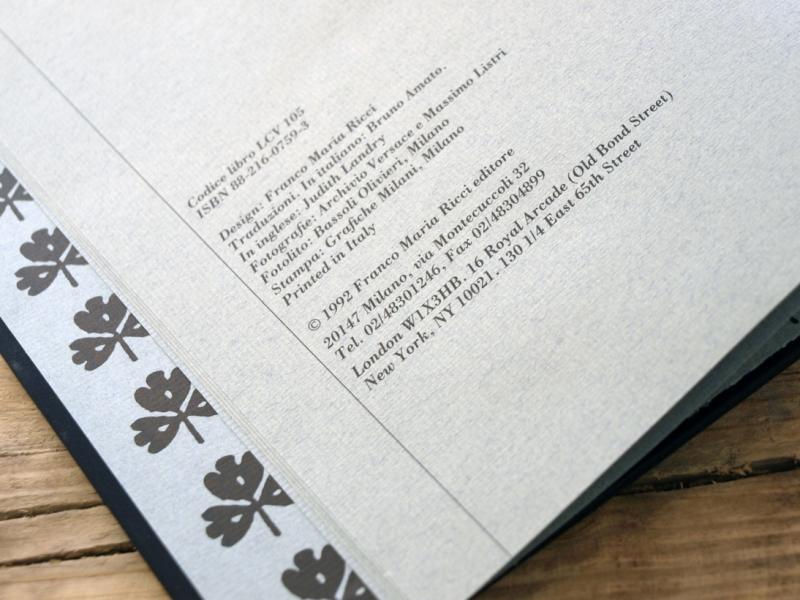 Codice libro LCV 105
ISBN 88-216-0759-3
Design: Franco Maria Ricci
Traduzioni: In italiano: Bruno Amato.
In inglese: Judith Landry
Fotografie: Archivio Versace e Massimo Listri
Fotolito: Bassoli Olivieri, Milano
Stampa: Grafiche Milani, Milano
Printed in Italy
© 1992 Franco Maria Ricci editore
20147 Milano, via Montecuccoli 32
Tel. 02/48301246, Fax 02/48304899
London W1X3HB. 16 Royal Arcade (Old Bond Street)
New York, NY 10021. 130 1/4 East 65th Street